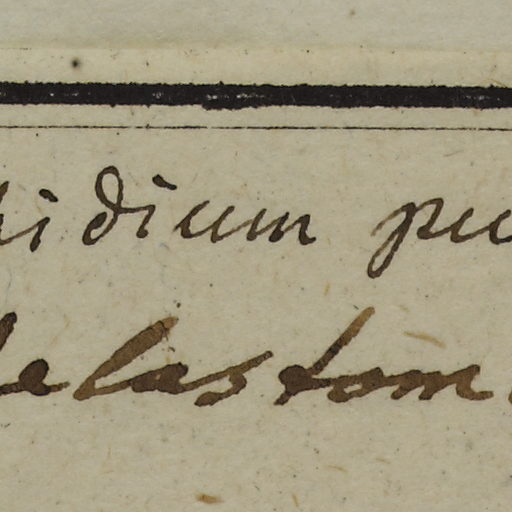 hidium pu
elastom